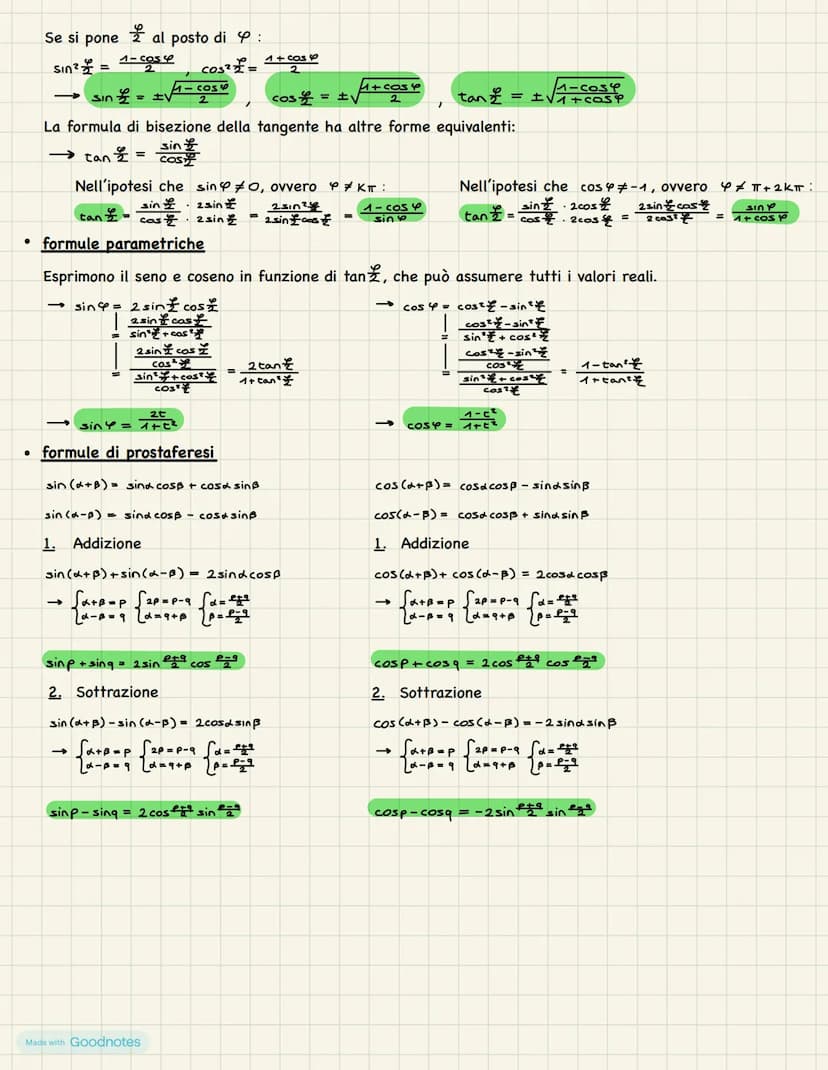 Se si pone φ/2 al posto di φ :
sin² φ/2 = (1 - cos φ)/2 , cos² φ/2 = (1 + cos φ)/2
→ sin φ/2 = ±√((1 - cos φ)/2) , cos φ/2 = ±√((1 + cos φ)/2) , tan φ/2 = ±√((1 - cos φ)/(1 + cos φ))
La formula di bisezione della tangente ha altre forme equivalenti:
→ tan φ/2 = (sin φ/2)/(cos φ/2)
Nell'ipotesi che sin φ ≠ 0, ovvero φ ≠ kπ :
tan φ/2 = (sin φ/2)/(cos φ/2) · (2 sin φ/2)/(2 sin φ/2) = (2 sin² φ/2)/(2 sin φ/2 cos φ/2) = (1 - cos φ)/(sin φ)
Nell'ipotesi che cos φ ≠ -1, ovvero φ ≠ π + 2kπ :
tan φ/2 = (sin φ/2)/(cos φ/2) · (2 cos φ/2)/(2 cos φ/2) = (2 sin φ/2 cos φ/2)/(2 cos² φ/2) = (sin φ)/(1 + cos φ)
• formule parametriche
Esprimono il seno e coseno in funzione di tan φ/2, che può assumere tutti i valori reali.
→ sin φ = 2 sin φ/2 cos φ/2
= (2 sin φ/2 cos φ/2)/(sin² φ/2 + cos² φ/2)
= ((2 sin φ/2 cos φ/2)/(cos² φ/2))/((sin² φ/2 + cos² φ/2)/(cos² φ/2)) = (2 tan φ/2)/(1 + tan² φ/2)
→ sin φ = 2t/(1 + t²)
→ cos φ = cos² φ/2 - sin² φ/2
= (cos² φ/2 - sin² φ/2)/(sin² φ/2 + cos² φ/2)
= ((cos² φ/2 - sin² φ/2)/(cos² φ/2))/((sin² φ/2 + cos² φ/2)/(cos² φ/2)) = (1 - tan² φ/2)/(1 + tan² φ/2)
→ cos φ = (1 - t²)/(1 + t²)
• formule di prostaferesi
sin (α+β) = sinα cosβ + cosα sinβ
sin (α-β) = sinα cosβ - cosα sinβ
1. Addizione
sin (α+β) + sin (α-β) = 2 sinα cosβ
→ { α+β = p { 2β = p-q { α = (p+q)/2
{ α-β = q { α = q+β { β = (p-q)/2
sin p + sin q = 2 sin (p+q)/2 cos (p-q)/2
2. Sottrazione
sin (α+β) - sin (α-β) = 2 cosα sinβ
→ { α+β = p { 2β = p-q { α = (p+q)/2
{ α-β = q { α = q+β { β = (p-q)/2
sin p - sin q = 2 cos (p+q)/2 sin (p-q)/2
cos (α+β) = cosα cosβ - sinα sinβ
cos (α-β) = cosα cosβ + sinα sinβ
1. Addizione
cos (α+β) + cos (α-β) = 2 cosα cosβ
→ { α+β = p { 2β = p-q { α = (p+q)/2
{ α-β = q { α = q+β { β = (p-q)/2
cos p + cos q = 2 cos (p+q)/2 cos (p-q)/2
2. Sottrazione
cos (α+β) - cos (α-β) = -2 sinα sinβ
→ { α+β = p { 2β = p-q { α = (p+q)/2
{ α-β = q { α = q+β { β = (p-q)/2
cos p - cos q = -2 sin (p+q)/2 sin (p-q)/2
Made with Goodnotes